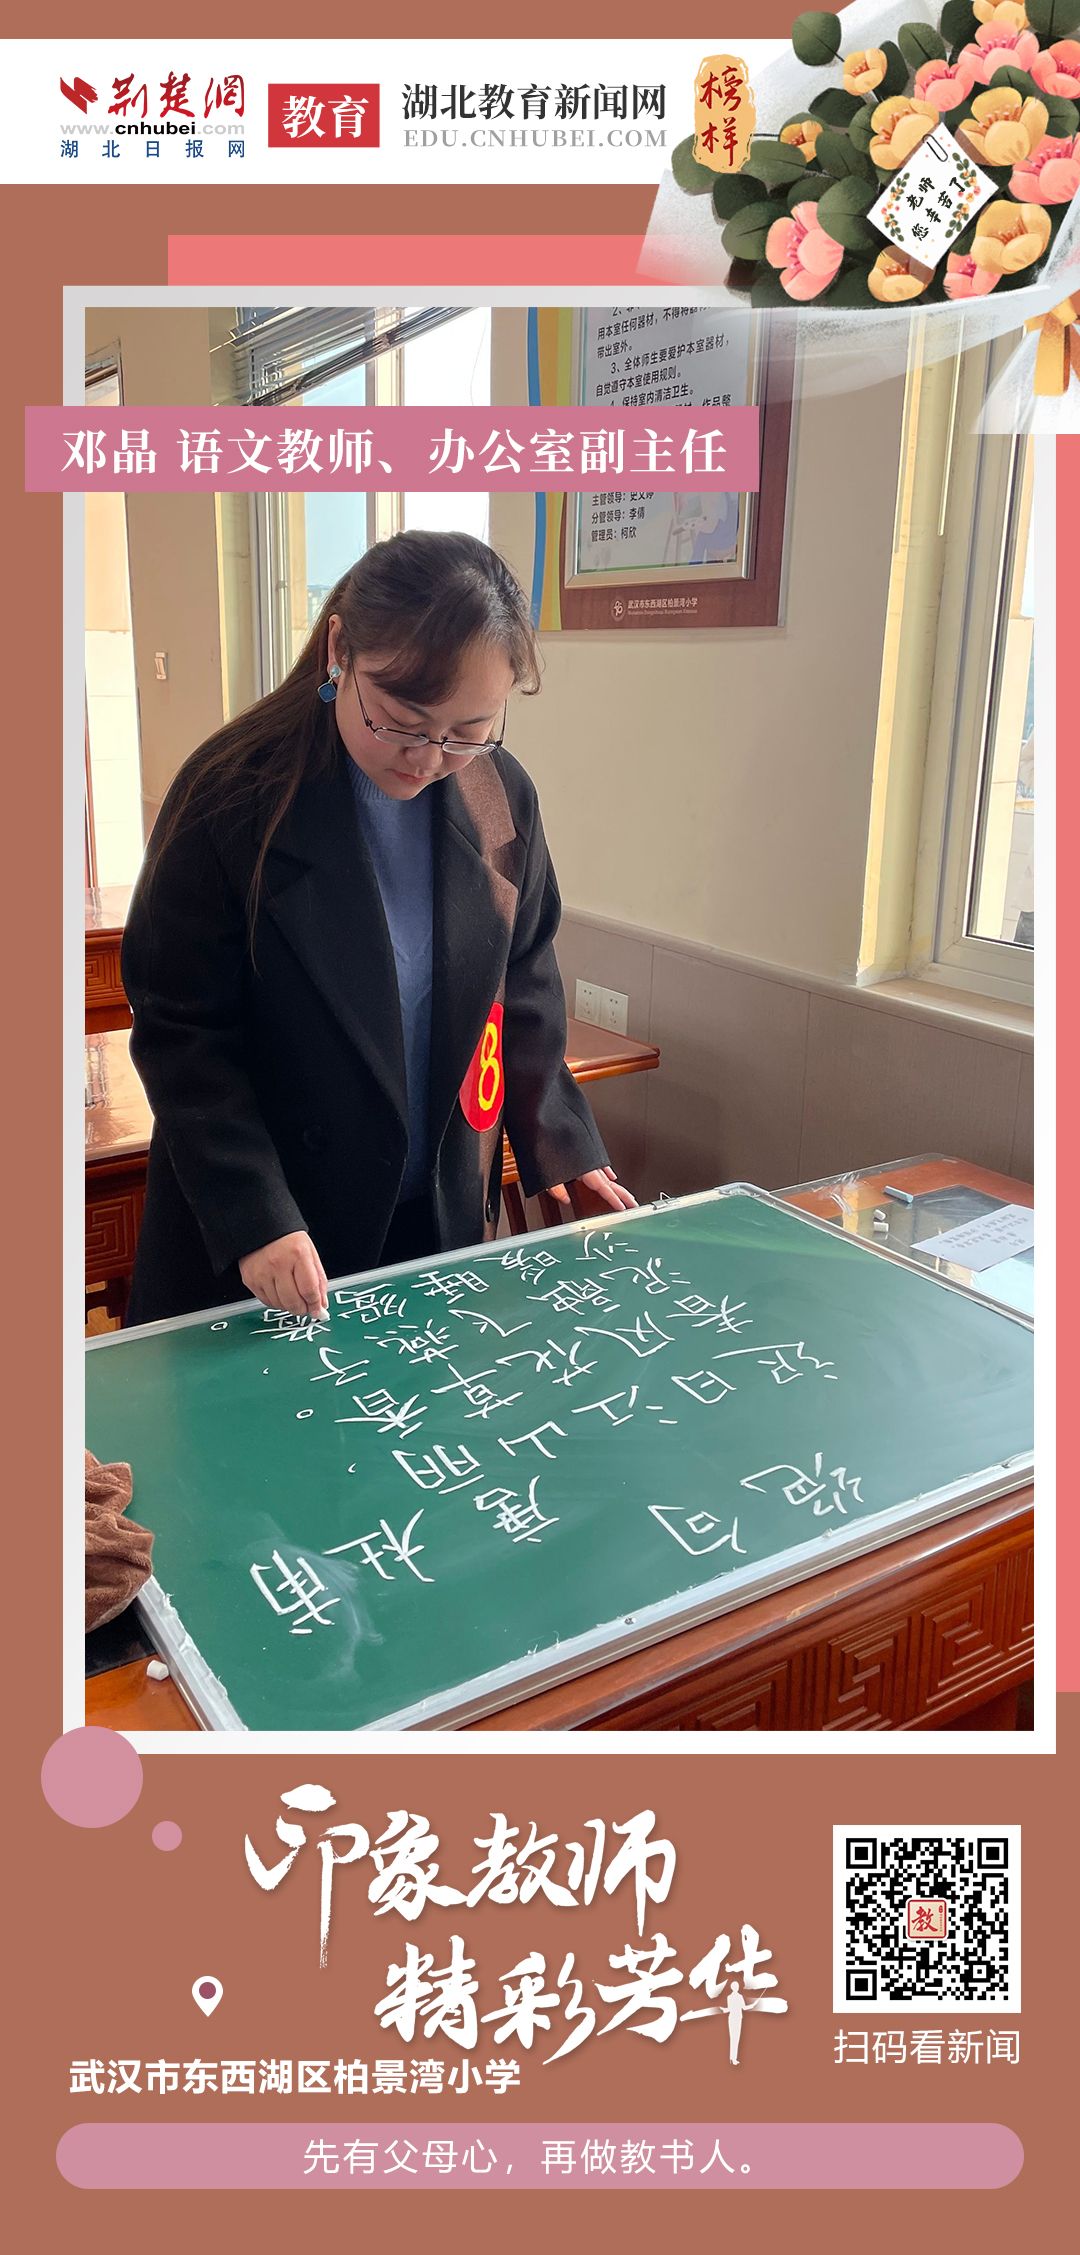 荆楚网
www.cnhubei.com
湖北日报网
教育
湖北教育新闻网
EDU.CNHUBEI.COM
榜样
老师
您辛苦了
用本室任何器材，不得将器材
带出室外。
3、全体师生要爱护本室器材，
自觉遵守本室使用规则。
4、保持室内清洁卫生。
邓晶 语文教师、办公室副主任
主管领导：史文婷
分管领导：李倩
管理员：柯欣
武汉市东西湖区柏景湾小学
8
绝句 唐 杜甫
迟日江山丽，
春风花草香。
泥融飞燕子，
沙暖睡鸳鸯。
印象教师
精彩芳华
教
扫码看新闻
武汉市东西湖区柏景湾小学
先有父母心，再做教书人。